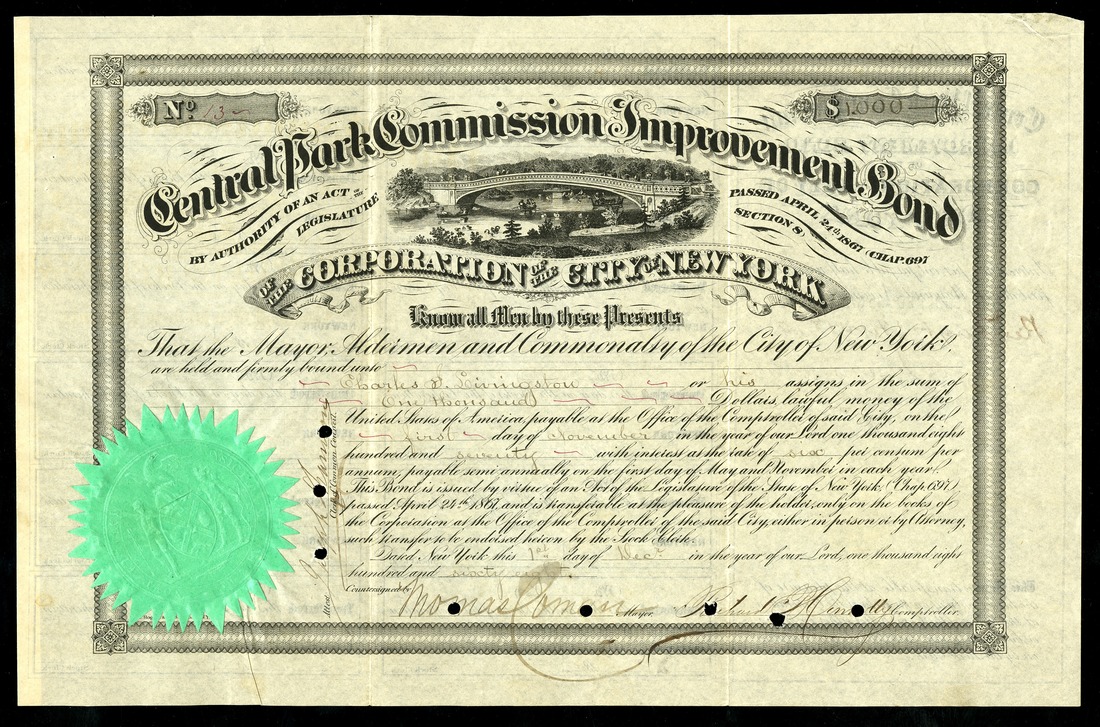 No 13
$1,000
Central Park Commission Improvement Bond
BY AUTHORITY OF AN ACT OF THE LEGISLATURE
PASSED APRIL 24th 1867 (CHAP. 697 SECTION 8)
OF THE CORPORATION OF THE CITY OF NEW YORK
Know all Men by these Presents
That the Mayor, Aldermen and Commonalty of the City of New York,
are held and firmly bound unto
Charles Livingston or his assigns in the sum of
One thousand Dollars, lawful money of the
United States of America, payable at the Office of the Comptroller of said City, on the
first day of November in the year of our Lord one thousand eight
hundred and seventy with interest at the rate of six per centum per
annum, payable semi annually on the first day of May and November in each year.
This Bond is issued by virtue of an Act of the Legislature of the State of New York, (Chap. 697)
passed April 24th 1867, and is transferable at the pleasure of the holder, only on the books of
the Corporation at the Office of the Comptroller of the said City, either in person or by Attorney,
such transfer to be endorsed hereon by the Stock Clerk.
Dated New York this 1st day of Decr in the year of our Lord, one thousand eight
hundred and sixty eight.
Countersigned by Thomas Coman Mayor Comptroller.
Attest Clerk of Common Council.